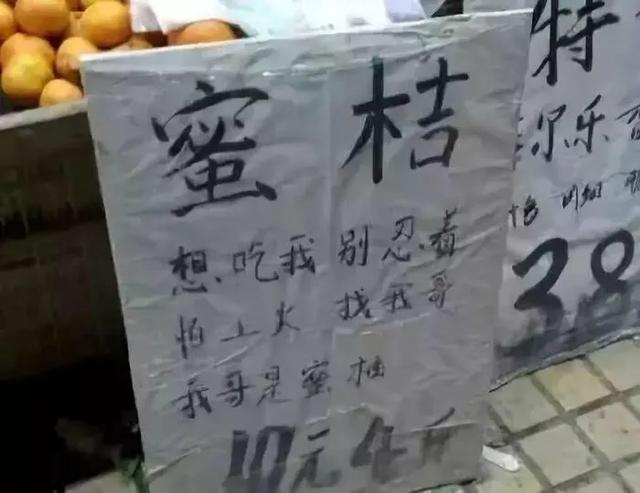 蜜桔
想吃我 别忍着
怕上火 找我哥
我哥是蜜柚
10元4斤
特
38